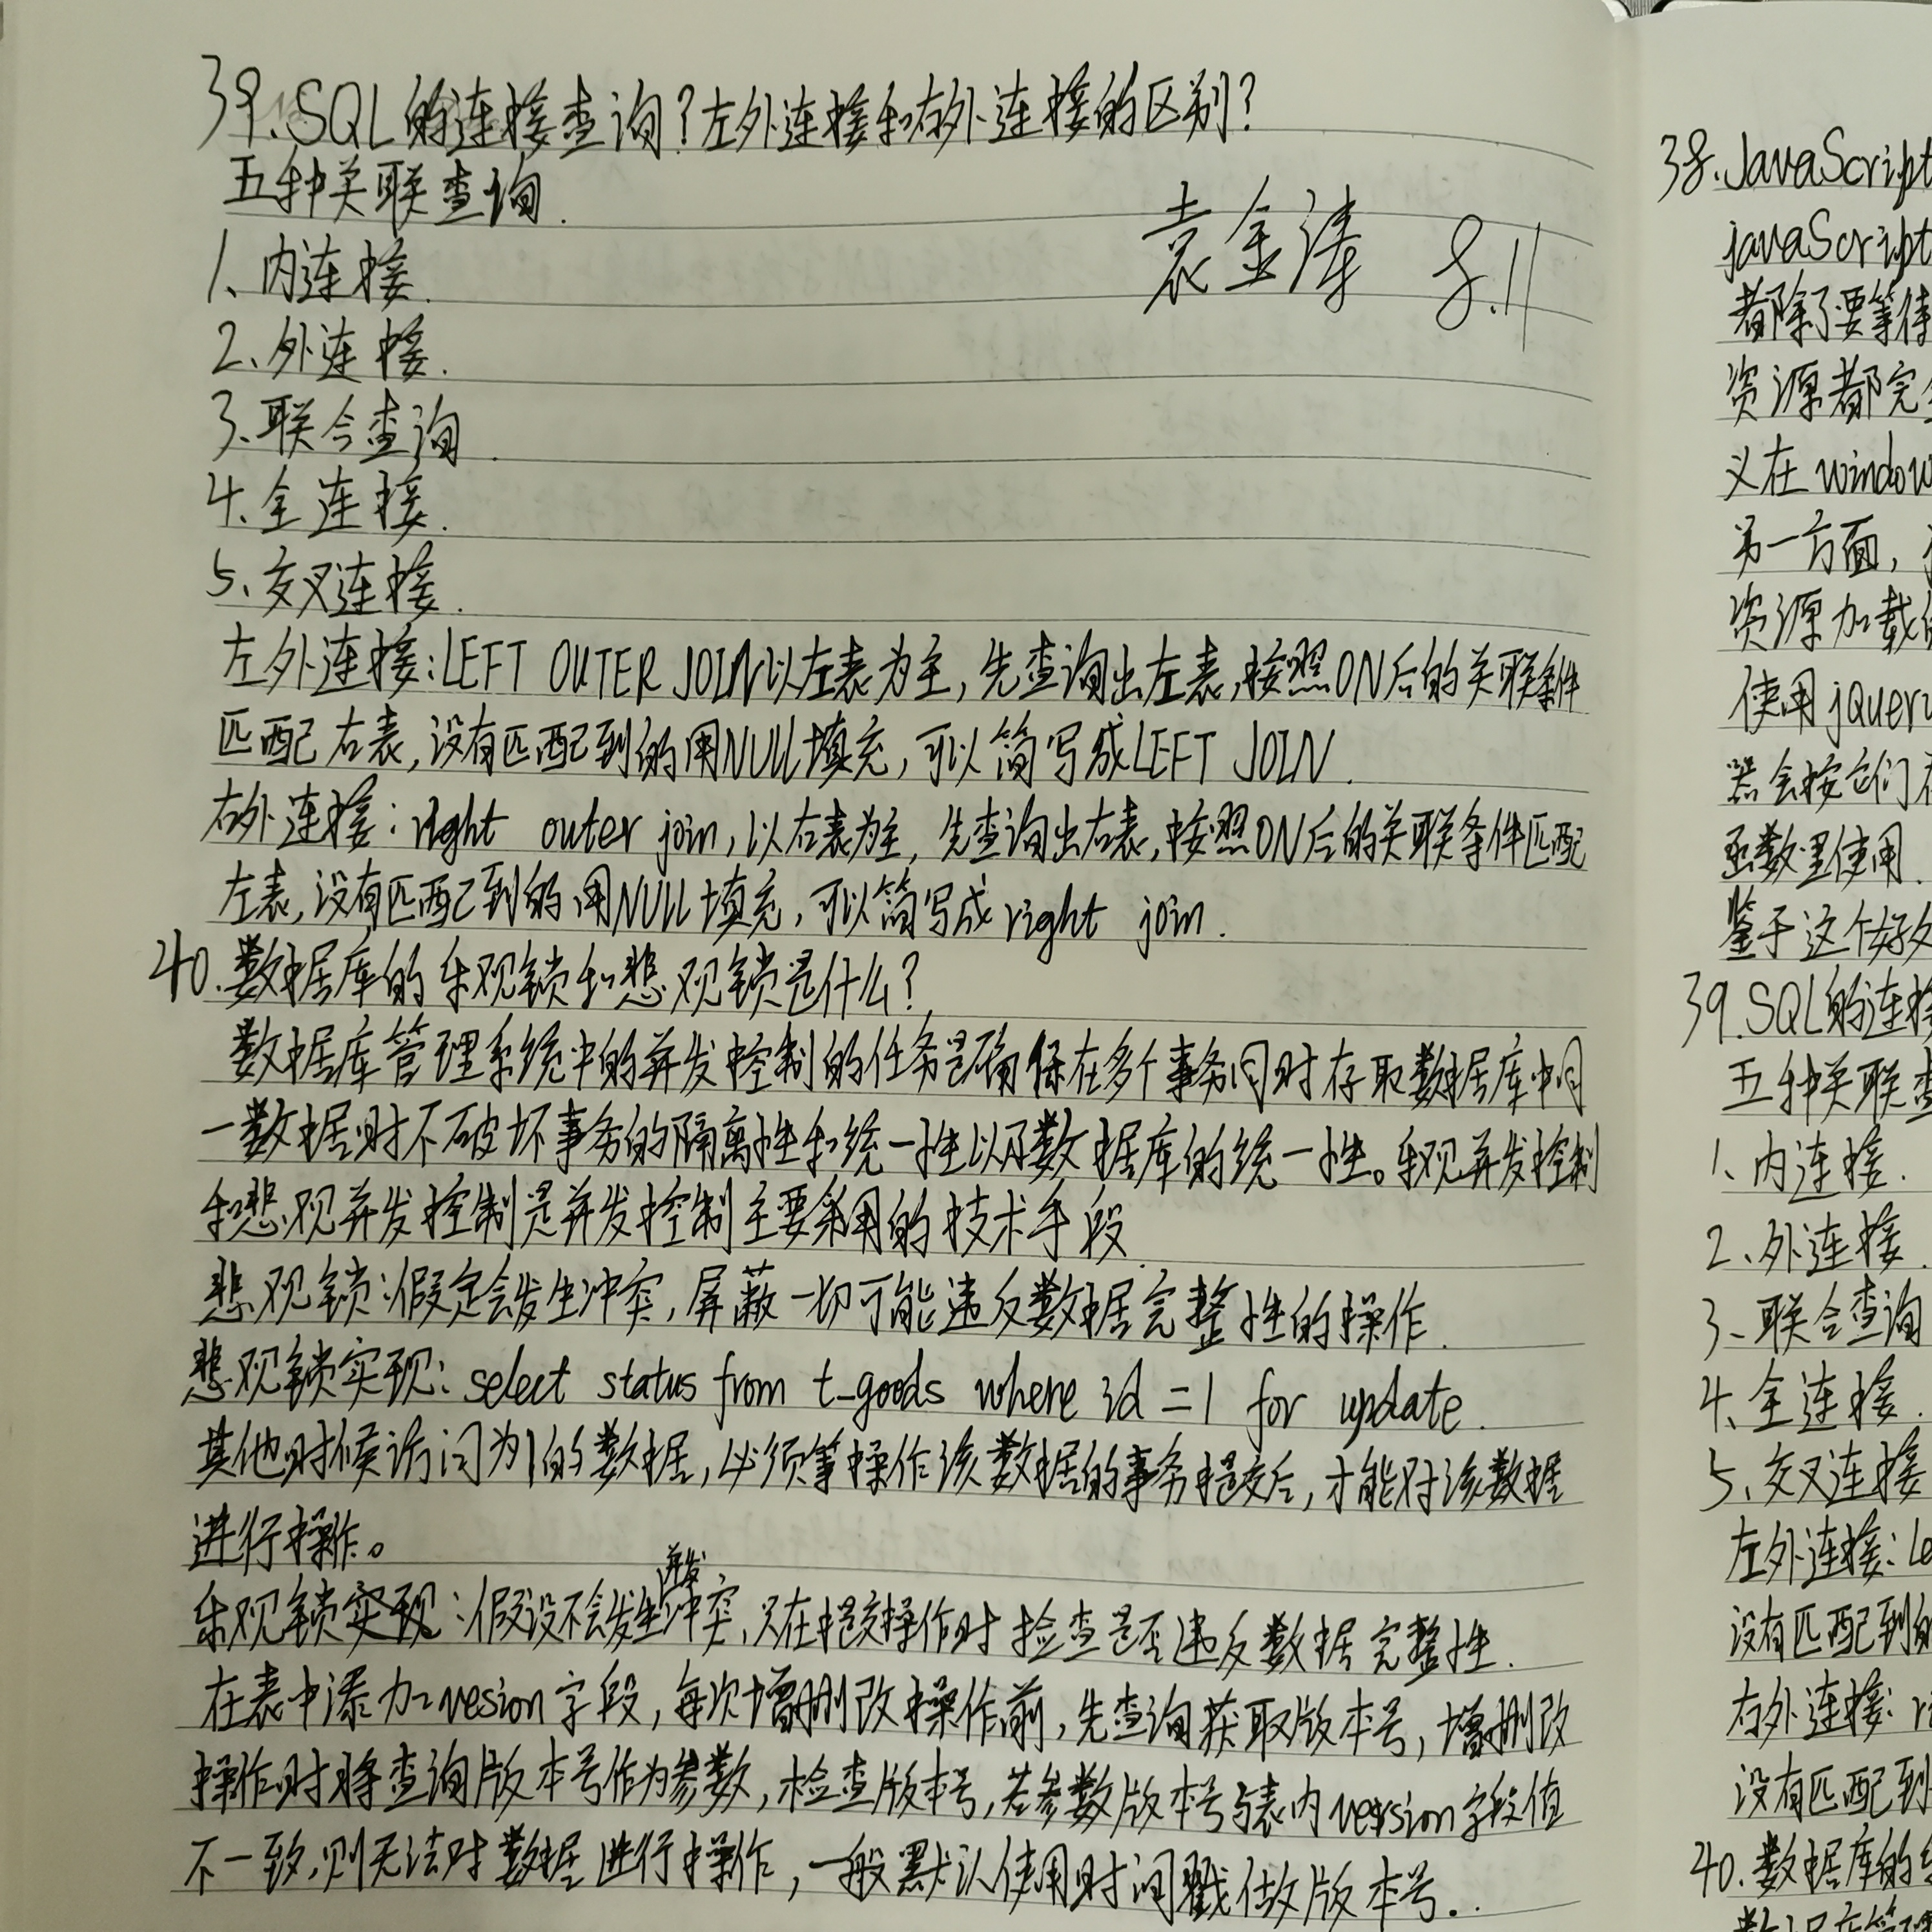 39.SQL的连接查询?左外连接和右外连接的区别?
五种关联查询.
袁金涛 8.11
1、内连接.
2、外连接.
3、联合查询.
4、全连接.
5、交叉连接.
左外连接:LEFT OUTER JOIN以左表为主,先查询出左表,按照ON后的关联条件
匹配右表,没有匹配到的用NULL填充,可以简写成LEFT JOIN.
右外连接:right outer join,以右表为主,先查询出右表,按照ON后的关联条件匹配
左表,没有匹配到的用NULL填充,可以简写成right join.
40.数据库的乐观锁和悲观锁是什么?
数据库管理系统中的并发控制的任务是确保在多个事务同时存取数据库中同
一数据时不破坏事务的隔离性和统一性以及数据库的统一性。乐观并发控制
和悲观并发控制是并发控制主要采用的技术手段.
悲观锁:假定会发生冲突,屏蔽一切可能违反数据完整性的操作.
悲观锁实现:select status from t_goods where id=1 for update.
其他时候访问为1的数据,必须等操作该数据的事务提交后,才能对该数据
进行操作。
乐观锁实现:假设不会发生并发冲突,只在提交操作时检查是否违反数据完整性.
在表中添加vesion字段,每次增删改操作前,先查询获取版本号,增删改
操作时将查询版本号作为参数,检查版本号,若参数版本号与表内version字段值
不一致,则无法对数据进行操作,一般默认使用时间戳做版本号..
38.JavaScript
javaScript
都除了要等待
资源都完
义在window
另一方面,
资源加载
使用jQuery
器会按它们
函数里使用.
鉴于这个好
39.SQL的连接
五种关联查
1、内连接.
2、外连接.
3、联合查询
4、全连接.
5、交叉连接
左外连接:Le
没有匹配到的
右外连接:r
没有匹配到
40.数据库的